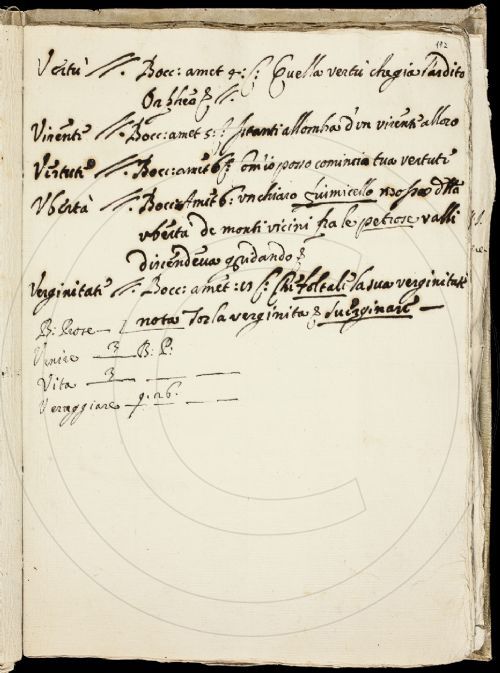 112
Vertù Bocc: amet 4: Quella vertù che già l'ardito
Orpheo
Virenti Bocc: amet 5: stanti all ombra d'un virenti alloro
Vertuti Bocc: amet 6 mio posso comincia tua vertuti
Vbertà Bocc: Amet 6: vn chiaro fiumicello
vbertà de monti vicini fra le petrose valli
discendeua gridando
Verginitati Bocc: amet: Chi toltali la sua verginitate
nota Tor la verginita & suerginare
B: Prose
Venire 3 B: P:
Vita 3
Verdeggiare 9. 26.